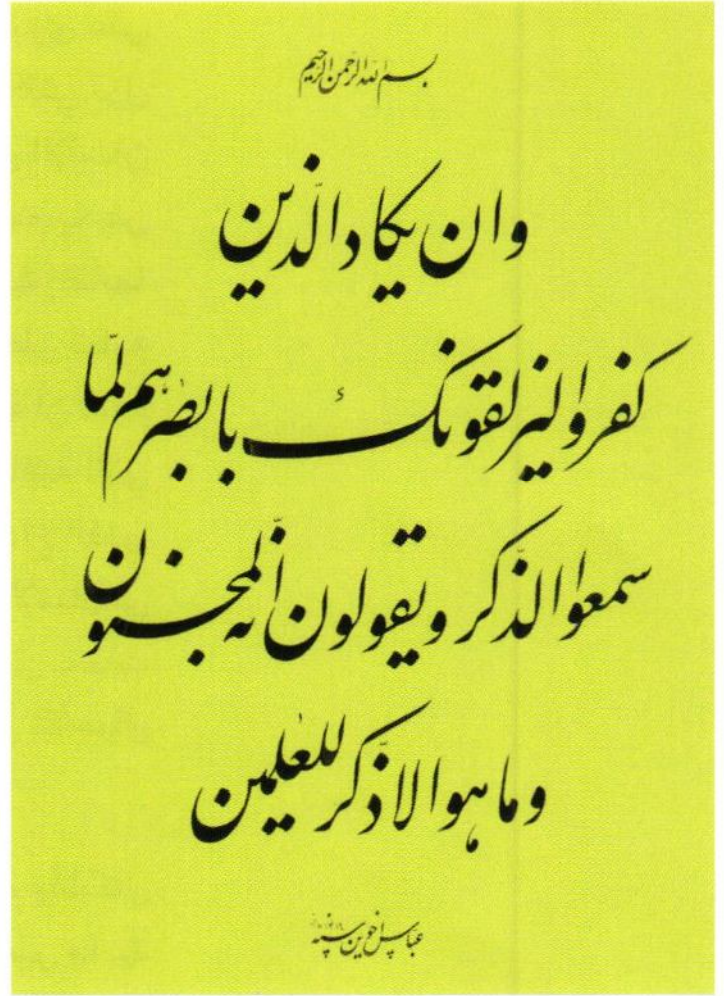 بسم الله الرحمن الرحیم
وان یکاد الّذین
کفروا لیزلقونک بابصٰرهم لمّا
سمعوا الذّکر و یقولون انّه لمجنون
و ما هو الا ذکر للعٰلمین
عباس اخوین